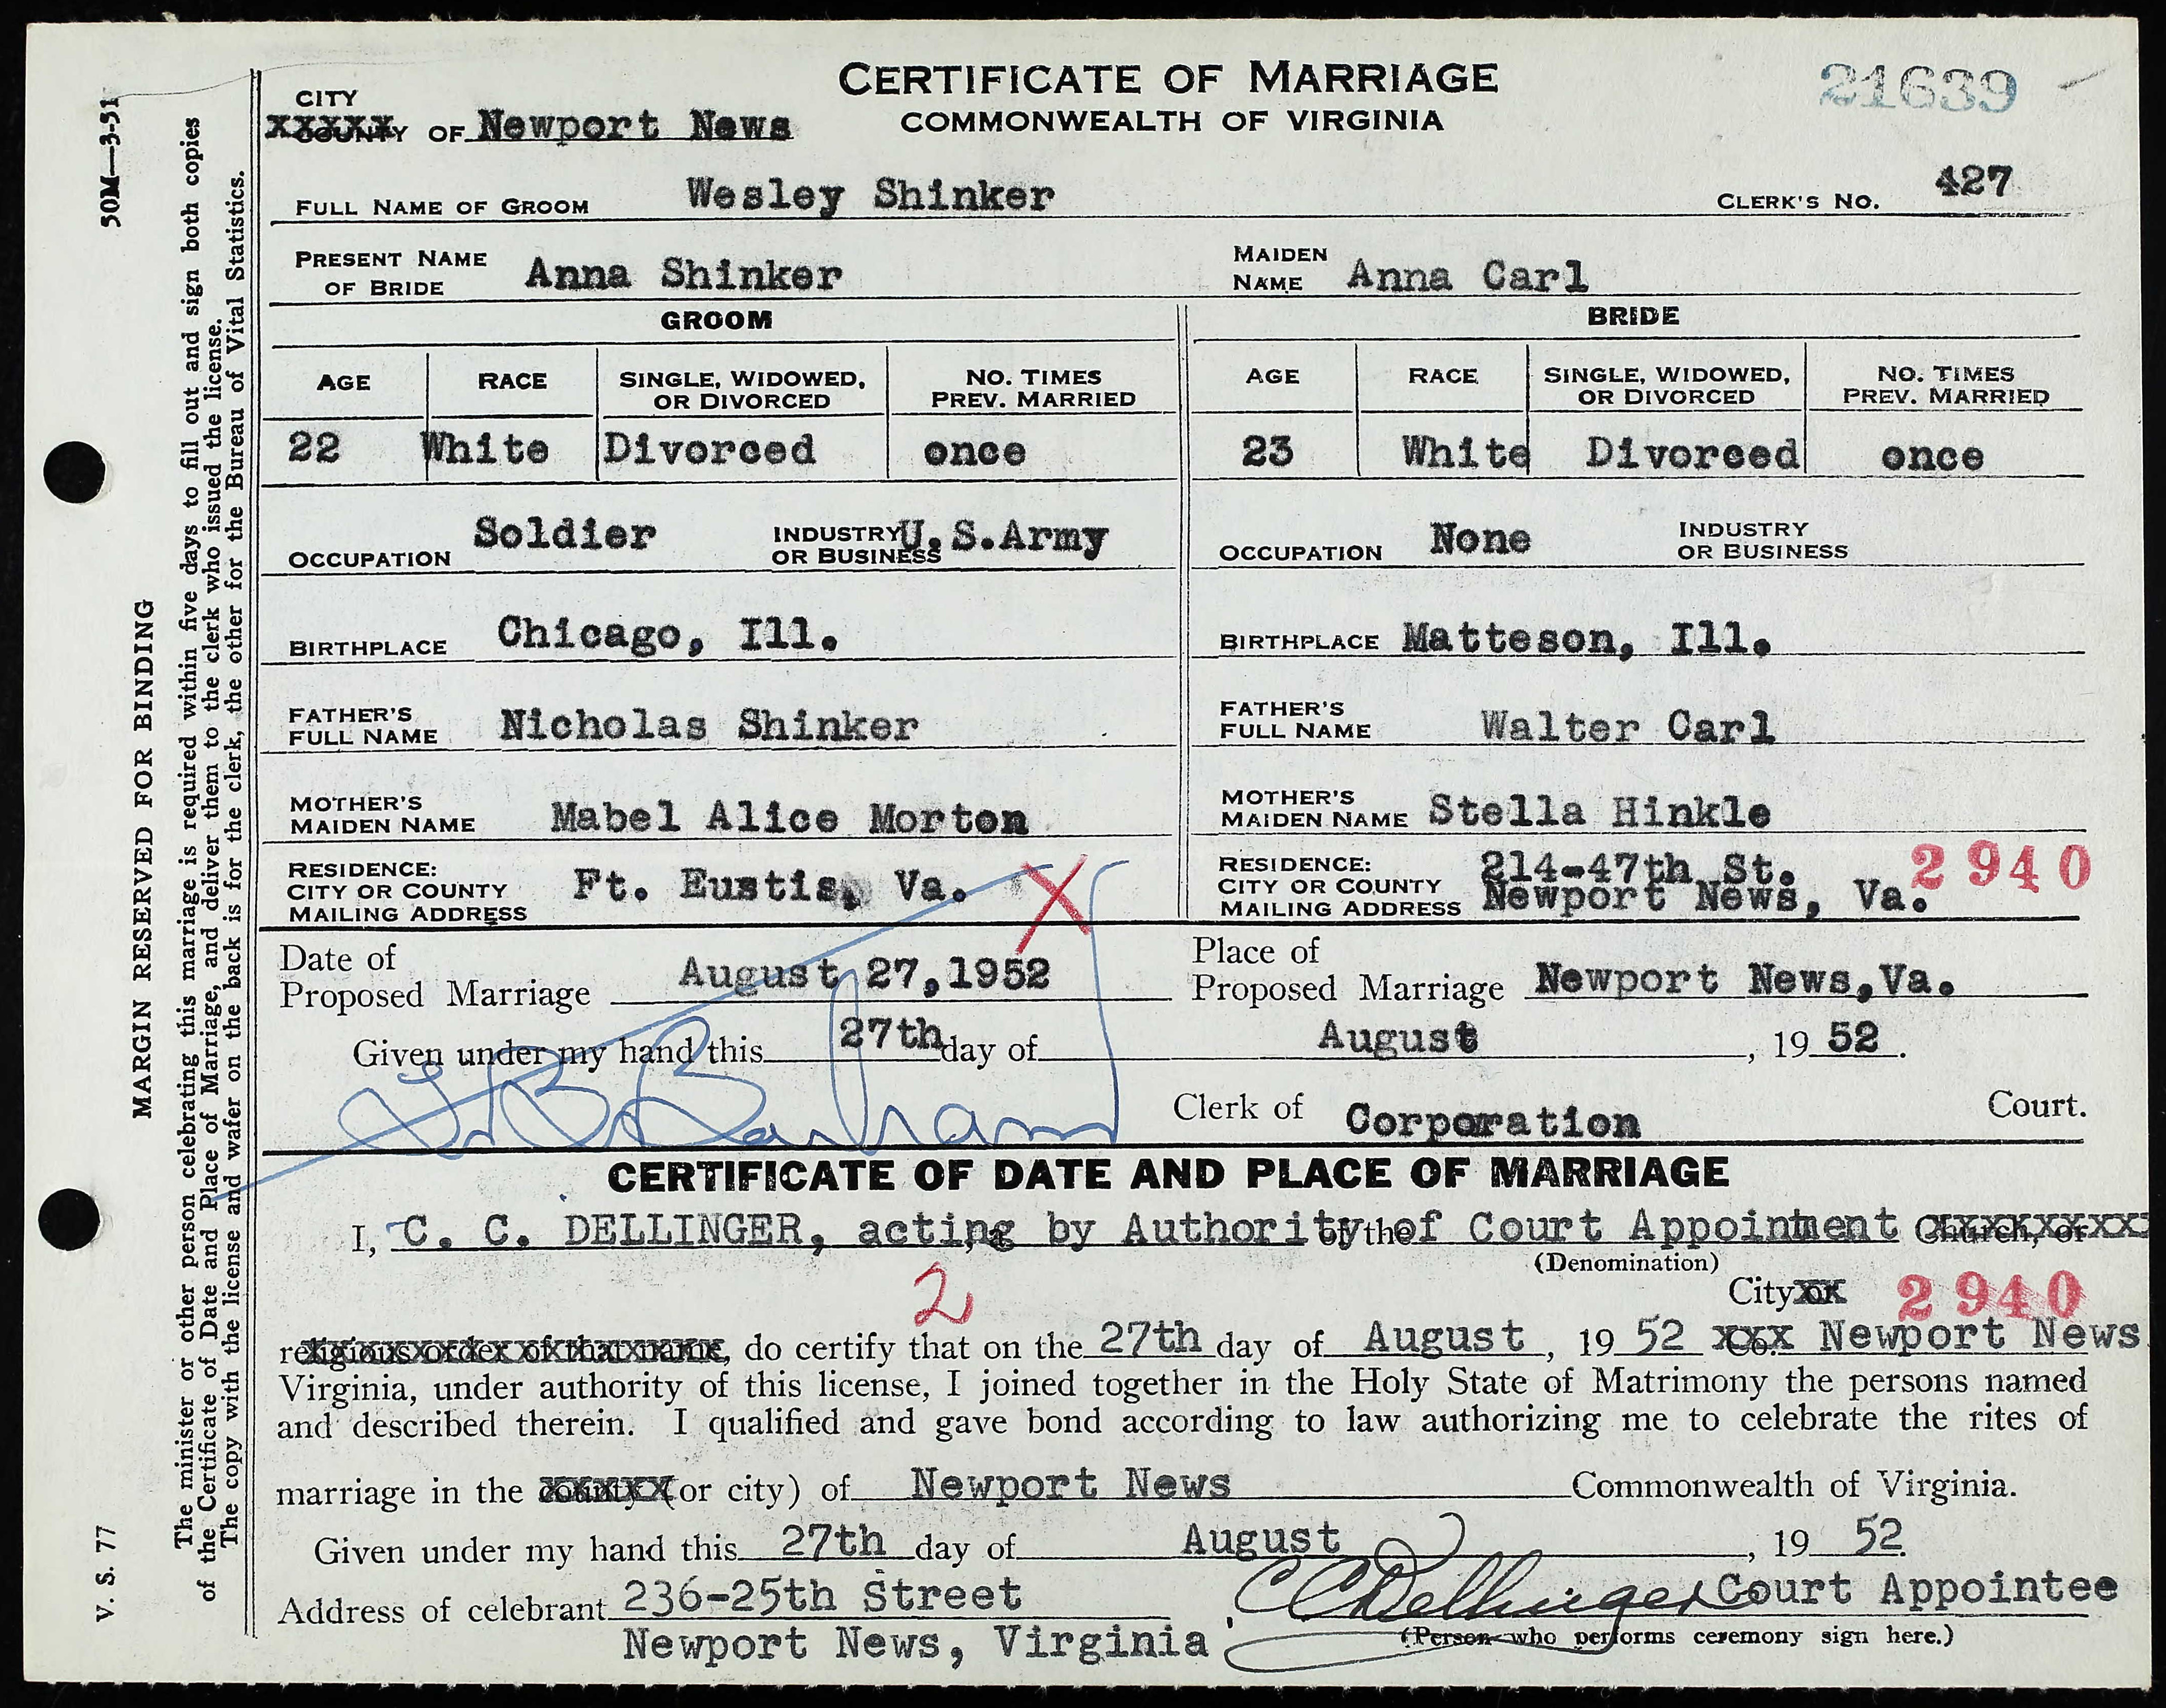 CERTIFICATE OF MARRIAGE
COMMONWEALTH OF VIRGINIA
21639
CITY
XXXXX COUNTY OF Newport News
FULL NAME OF GROOM Wesley Shinker CLERK'S NO. 427
PRESENT NAME OF BRIDE Anna Shinker MAIDEN NAME Anna Carl
GROOM BRIDE
AGE RACE SINGLE, WIDOWED, OR DIVORCED NO. TIMES PREV. MARRIED AGE RACE SINGLE, WIDOWED, OR DIVORCED NO. TIMES PREV. MARRIED
22 White Divorced once 23 White Divorced once
OCCUPATION Soldier INDUSTRY OR BUSINESS U.S.Army OCCUPATION None INDUSTRY OR BUSINESS
BIRTHPLACE Chicago, Ill. BIRTHPLACE Matteson, Ill.
FATHER'S FULL NAME Nicholas Shinker FATHER'S FULL NAME Walter Carl
MOTHER'S MAIDEN NAME Mabel Alice Morton MOTHER'S MAIDEN NAME Stella Hinkle
RESIDENCE: CITY OR COUNTY MAILING ADDRESS Ft. Eustis, Va. X RESIDENCE: CITY OR COUNTY MAILING ADDRESS 214-47th St. Newport News, Va. 2940
Date of Proposed Marriage August 27,1952 Place of Proposed Marriage Newport News,Va.
Given under my hand this 27th day of August, 1952.
Clerk of Corporation Court.
CERTIFICATE OF DATE AND PLACE OF MARRIAGE
I, C. C. DELLINGER, acting by Authority of the of Court Appointment Church, or
(Denomination)
2 City or 2940
religious order of that name, do certify that on the 27th day of August, 1952 Co. Newport News
Virginia, under authority of this license, I joined together in the Holy State of Matrimony the persons named
and described therein. I qualified and gave bond according to law authorizing me to celebrate the rites of
marriage in the county (or city) of Newport News Commonwealth of Virginia.
Given under my hand this 27th day of August, 1952.
Address of celebrant 236-25th Street CC Dellinger Court Appointee
Newport News, Virginia (Person who performs ceremony sign here.)
50M—3-51
MARGIN RESERVED FOR BINDING
V. S. 77
The minister or other person celebrating this marriage is required within five days to fill out and sign both copies
of the Certificate of Date and Place of Marriage, and deliver them to the clerk who issued the license.
The copy with the license and wafer on the back is for the clerk, the other for the Bureau of Vital Statistics.